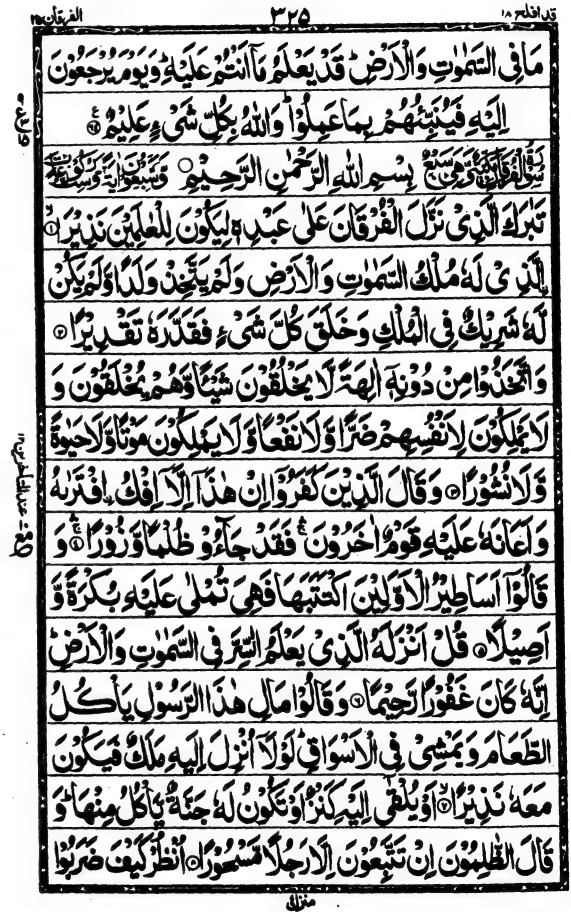 قد افلح ١٨ ٣٢٥ الفرقان ٢٥
مَا فِى السَّمٰوٰتِ وَالْاَرْضِ ؕ قَدْ يَعْلَمُ مَاۤ اَنْتُمْ عَلَيْهِ ؕ وَيَوْمَ يُرْجَعُوْنَ
اِلَيْهِ فَيُنَبِّئُهُمْ بِمَا عَمِلُوْا ؕ وَاللّٰهُ بِكُلِّ شَىْءٍ عَلِيْمٌ ﴿٦٤﴾
بِسْمِ اللّٰهِ الرَّحْمٰنِ الرَّحِيْمِ
تَبٰرَكَ الَّذِىْ نَزَّلَ الْفُرْقَانَ عَلٰى عَبْدِهٖ لِيَكُوْنَ لِلْعٰلَمِيْنَ نَذِيْرًا ﴿١﴾
الَّذِىْ لَهٗ مُلْكُ السَّمٰوٰتِ وَالْاَرْضِ وَلَمْ يَتَّخِذْ وَلَدًا وَّلَمْ يَكُنْ
لَّهٗ شَرِيْكٌ فِى الْمُلْكِ وَخَلَقَ كُلَّ شَىْءٍ فَقَدَّرَهٗ تَقْدِيْرًا ﴿٢﴾
وَاتَّخَذُوْا مِنْ دُوْنِهٖۤ اٰلِهَةً لَّا يَخْلُقُوْنَ شَيْئًا وَّهُمْ يُخْلَقُوْنَ وَ
لَا يَمْلِكُوْنَ لِاَنْفُسِهِمْ ضَرًّا وَّلَا نَفْعًا وَّلَا يَمْلِكُوْنَ مَوْتًا وَّلَا حَيٰوةً
وَّلَا نُشُوْرًا ﴿٣﴾ وَقَالَ الَّذِيْنَ كَفَرُوْۤا اِنْ هٰذَاۤ اِلَّاۤ اِفْكُ اۨفْتَرٰىهُ
وَاَعَانَهٗ عَلَيْهِ قَوْمٌ اٰخَرُوْنَ ۛۚ فَقَدْ جَآءُوْ ظُلْمًا وَّزُوْرًا ﴿٤﴾ وَ
قَالُوْۤا اَسَاطِيْرُ الْاَوَّلِيْنَ اكْتَتَبَهَا فَهِىَ تُمْلٰى عَلَيْهِ بُكْرَةً وَّ
اَصِيْلًا ﴿٥﴾ قُلْ اَنْزَلَهُ الَّذِىْ يَعْلَمُ السِّرَّ فِى السَّمٰوٰتِ وَالْاَرْضِ ؕ
اِنَّهٗ كَانَ غَفُوْرًا رَّحِيْمًا ﴿٦﴾ وَقَالُوْا مَالِ هٰذَا الرَّسُوْلِ يَاْكُلُ
الطَّعَامَ وَيَمْشِىْ فِى الْاَسْوَاقِ ؕ لَوْلَاۤ اُنْزِلَ اِلَيْهِ مَلَكٌ فَيَكُوْنَ
مَعَهٗ نَذِيْرًا ﴿٧﴾ اَوْ يُلْقٰۤى اِلَيْهِ كَنْزٌ اَوْ تَكُوْنُ لَهٗ جَنَّةٌ يَّاْكُلُ مِنْهَا ؕ وَ
قَالَ الظّٰلِمُوْنَ اِنْ تَتَّبِعُوْنَ اِلَّا رَجُلًا مَّسْحُوْرًا ﴿٨﴾ اُنْظُرْ كَيْفَ ضَرَبُوْا